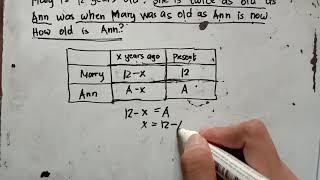 Mary is 12 years old. She is twice as old as
Ann was when Mary was as old as Ann is now.
How old is Ann?
x years ago Present
Mary 12-x 12
Ann A-x A
12-x = A
x = 12-